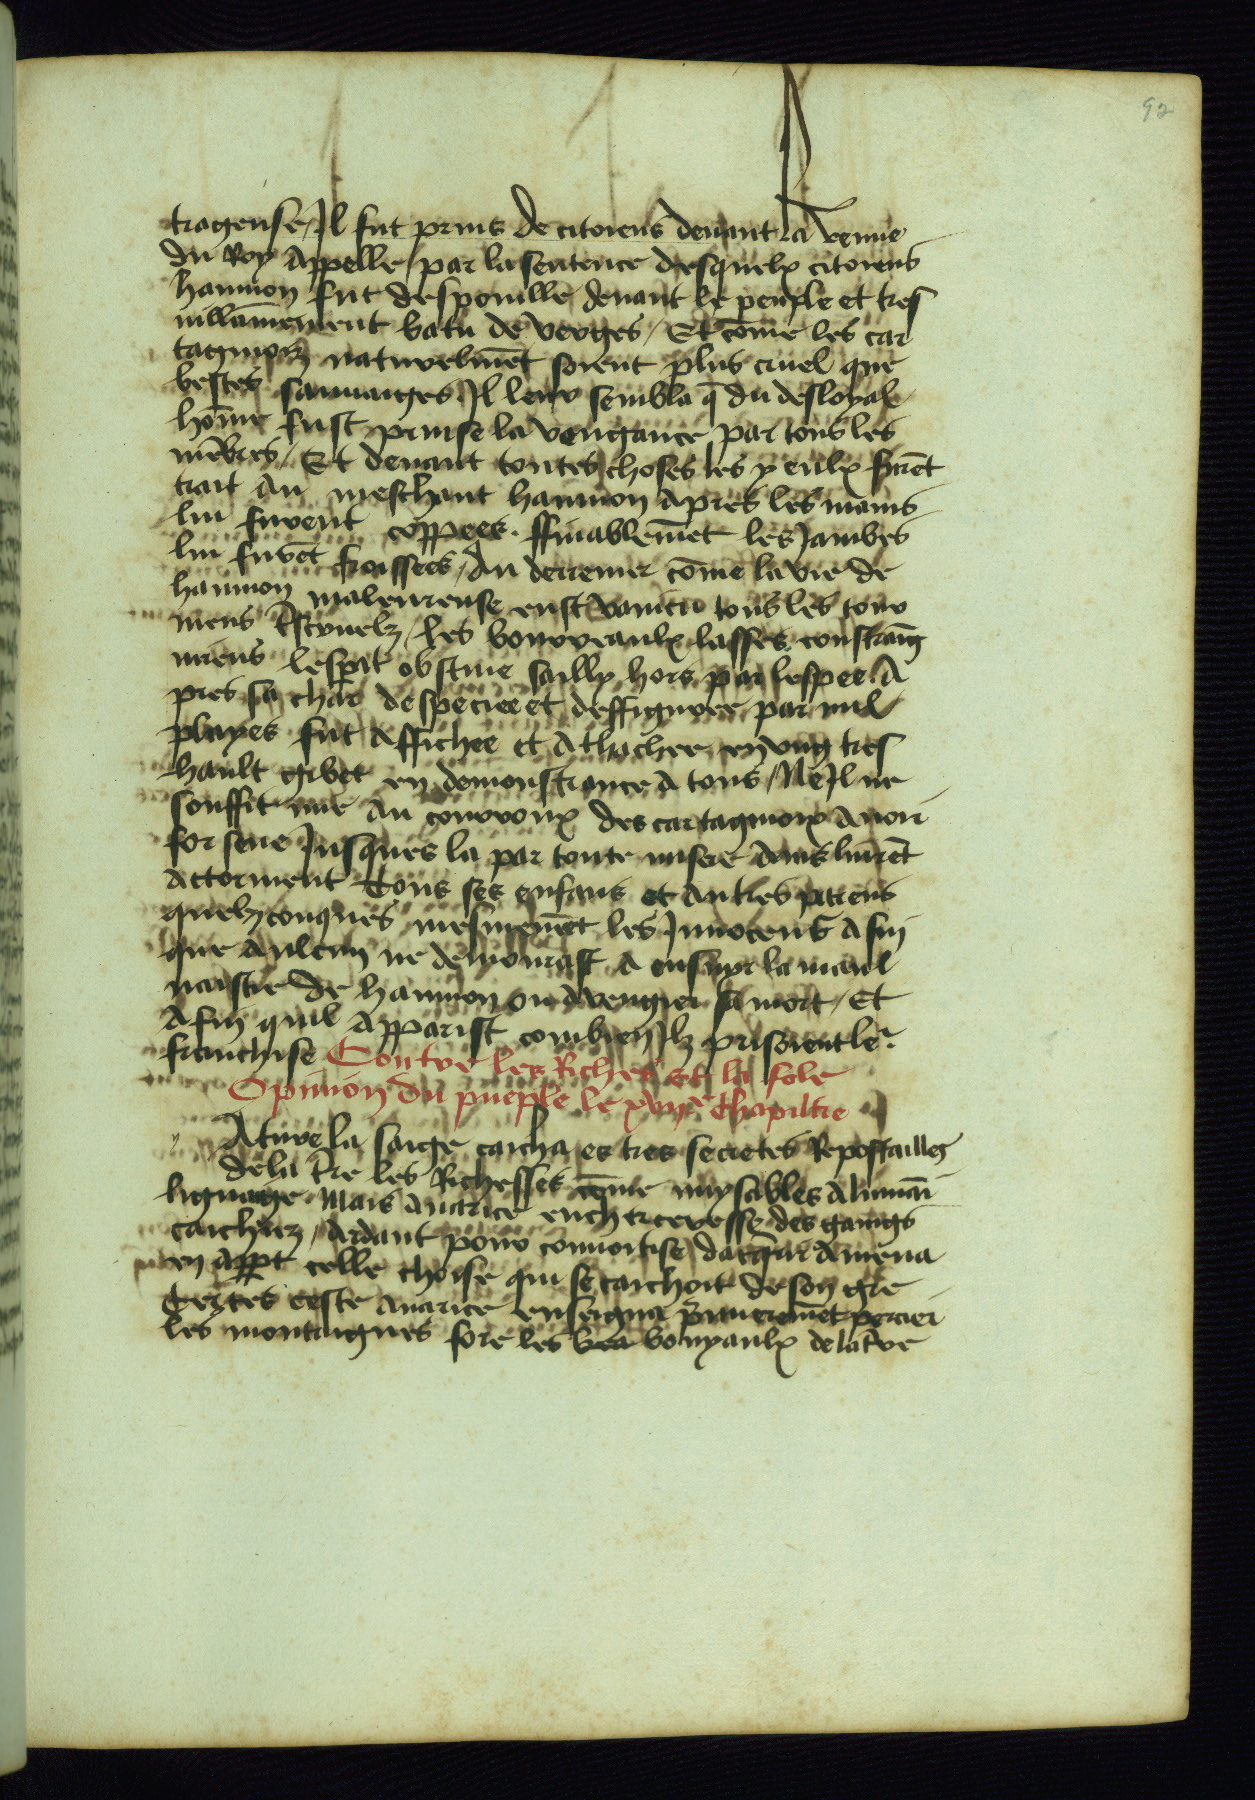 92
tragense / Il fut prins de citoiens deuant la venue
du Roy appelle / par la sentence desquelx citoiens
hannon fut despouille deuant le peuple et tres
villaῑnement batu de verges / Et cōme les car
taginoiz naturelmēt soient plus cruel que
bestes sauuaiges Il leur sembla q̄ du desloyal
hōme fust prinse la vengance par tous les
mēbres / Et deuant toutes choses les yeulx furēt
trait au meschant hannon apres les mains
lui furent coppees . ffinablemēt les Jambes
lui furēt froissees / Au derrenier cōme la vie de
hannon maleureuse eust vaincu tous les tour
mens les bourreaulx lasses
lesperit obstine sailly hors par lespee A
pres sa char despeciee et deffiguree par mil
playes fut affichee et atachee en vng tres
hault gibet en demonstrance a tous / Ne Il ne
souffit mie au courroux des cartaginoix auoir
forsene Jusques la par toute misere Ains liurēt
a torment tous ses enfans et autres parens
quelzconques mesmemēt les Innocens Afin
que aulcun ne demourast a ensuyr la maul
uaistie de hannon ou a vengier sa mort / Et
Afin quil apparist combien Ilz prisoient le.r
franchise Contre les Riches et la fole
Opinion du pueple le xviije chapiltre
Ature la saige caicha es tres secretes Repostailles
de la tr̄e les Richesses cōme nuysables a humaī
lignaige Mais auarice encherceresse des gaings
caichiez / ardant pour conuoitise dacquerir amena
en appt celle chose qui se caichoit de son gre
Certes ceste auarice enseigna p̄mieremēt percier
les montaignes fore les bea bouyaulx de la tr̄e